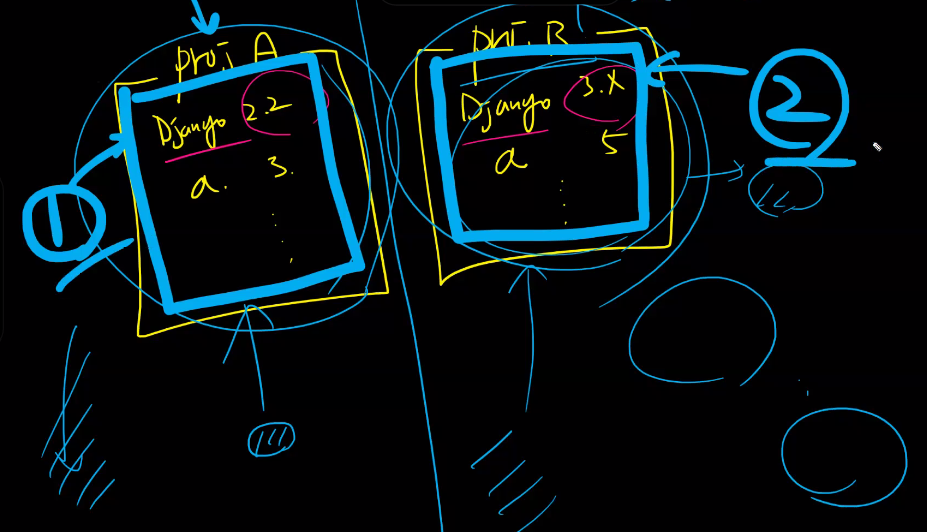 proj A
Django 2.2
a. 3.
1
proj. B
Django 3.x
a 5
2